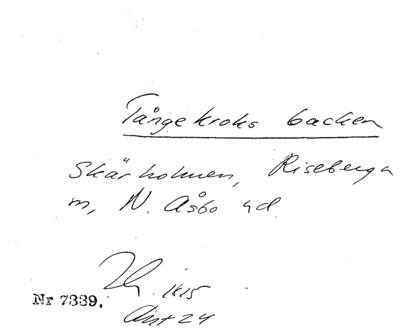 Tångekroks backen
Skärholmen, Riseberga
m, N. Åsbo hd
1815
Nr 7339.
Akt 24